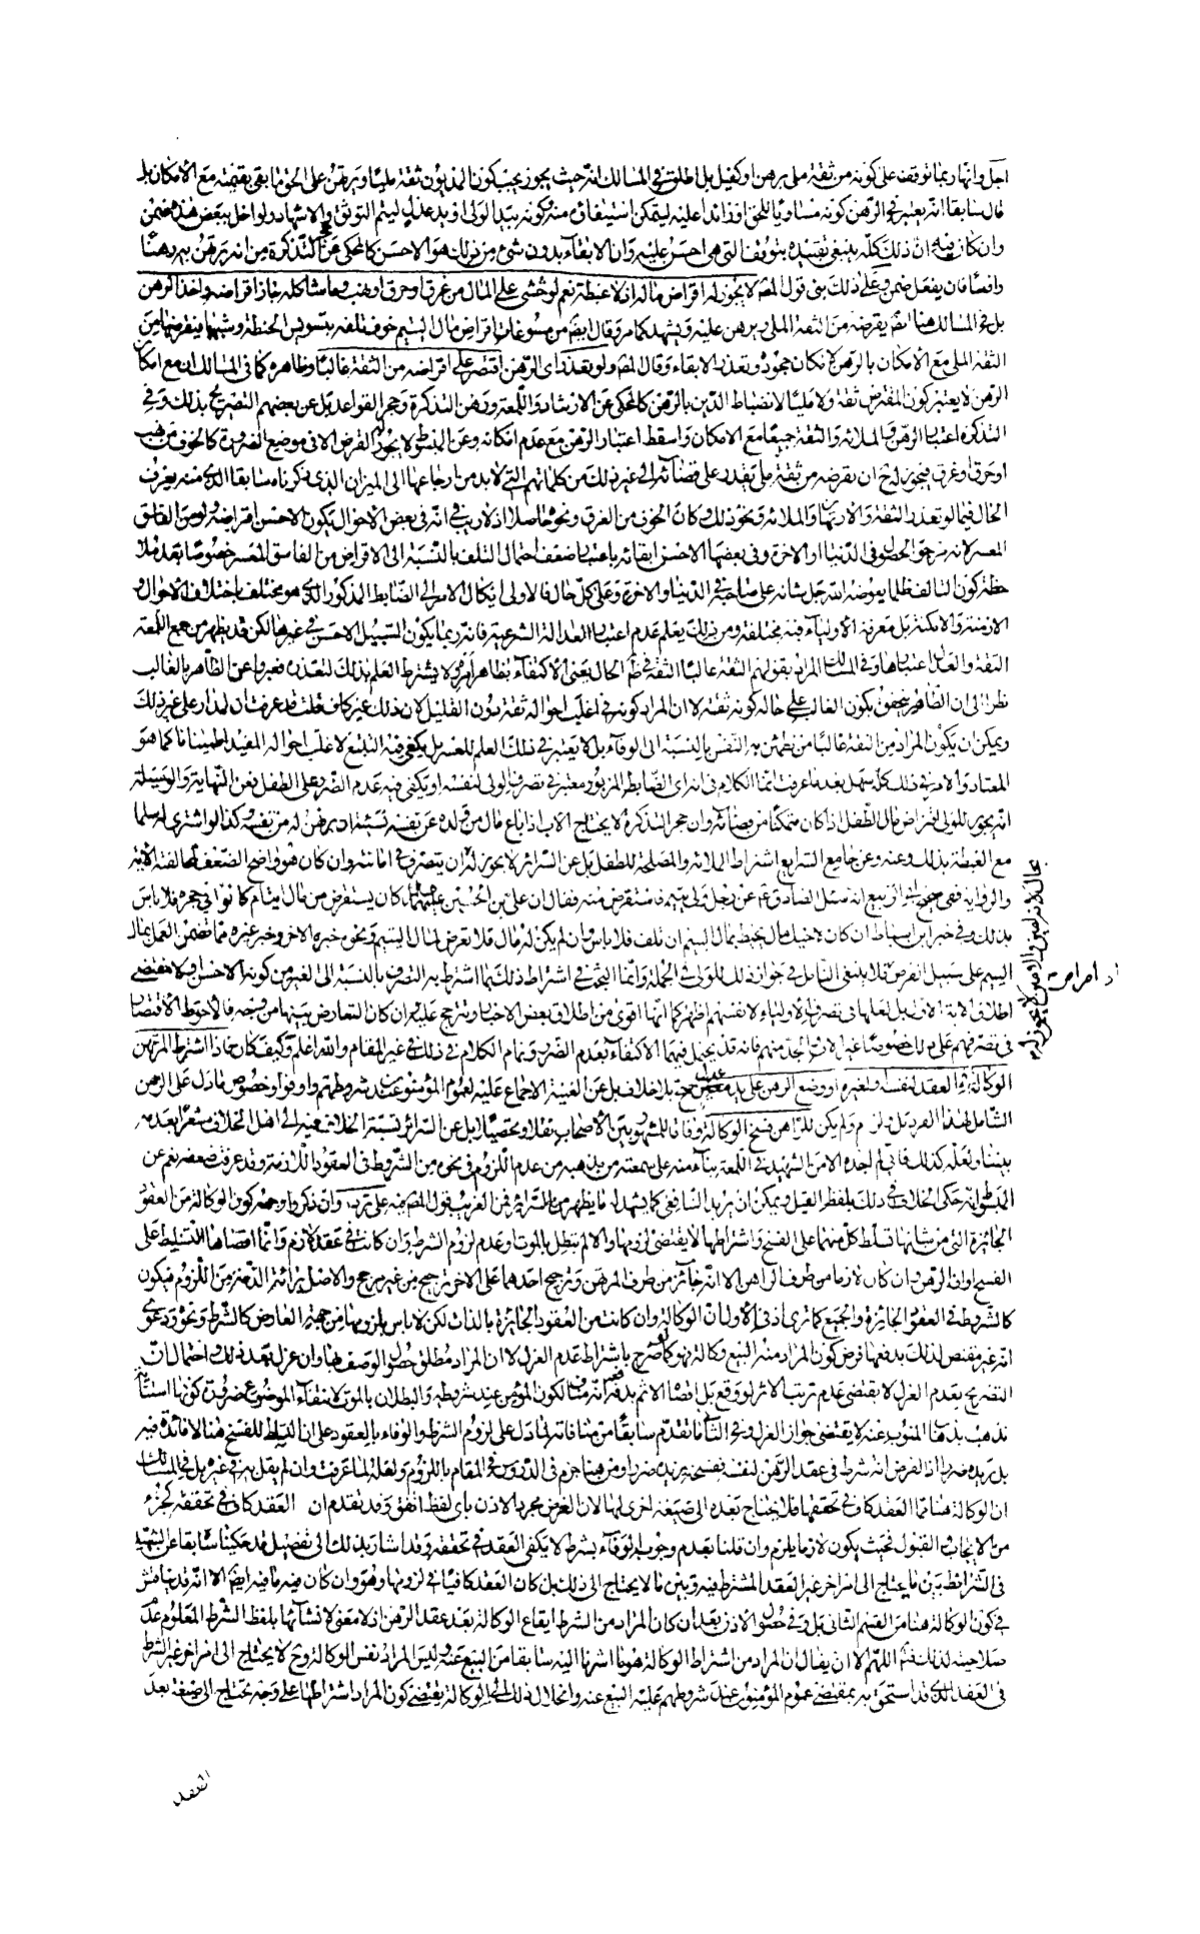 اجل وانها ربما توقف على كونه من ثقة ملي برهن او كفيل بل اطلق في المسالك انه حيث يجوز يجب كون المديون ثقة مليا ويرتهن على الحق ما بقي بقيمته مع الامكان بل
قال سابقا انه يعتبر في الرهن كونه مساويا للحق او زائدا عليه ليمكن استيفائه منه وكونه بيد الولي او يد عدل ليتم التوثق والاشهاد ولو اخل ببعض هذه ضمن
وان كان فيه ان ذلك كله ينبغي تقييده بتوقف التي هي احسن عليه وان الابقاء بدون شيء من ذلك هو الاحسن كالمحكي عن التذكرة من انه يرتهن به رهنا
وافيا فان لم يفعل ضمن وعلى ذلك بنى قول المصنف لا يجوز له اقراض ماله اذ لا غبطة نعم لو خشي على المال من غرق او حرق او نهب وما شاكله جاز اقراضه واخذ الرهن
بل في المسالك هنا انه يقرضه من الثقة الملي ويرهن عليه ويشهد كما مر وقال ايضا من مسوغات اقراض مال اليتيم خوف تلفه بتسويس الحنطة وشبهها فيقرضها من
الثقة الملي مع الامكان بالرهن لامكان جحوده وتعذر الابقاء وقال المصنف ولو تعذر اي الرهن اقتصر على اقراضه من الثقة غالبا وظاهره كما في المسالك ان مع امكان
الرهن لا يعتبر كون المقترض ثقة ولا مليا لانضباط الدين بالرهن كالمحكي عن الارشاد واللمعة ورهن التذكرة وحجر القواعد بل عن بعضهم التصريح بذلك وفي
التذكرة اعتبار الرهن والملائة والثقة جميعا مع الامكان واسقط اعتبار الرهن مع عدم امكانه وعن المبسوط لا يجوز القرض الا في موضع الضرورة كالخوف من نهب
او حرق او غرق فيجوز له ح ان يقرضه من ثقة ملي يقدر على قضائه الى غير ذلك من كلماتهم التي لا بد من ارجاعها الى الميزان الذي ذكرناه سابقا الذي منه يعرف
الحال فيما لو تعذر الثقة والارتهان والملائة ونحو ذلك وكان الخوف من الغرق ونحوه حاصلا اذ لا ريب في انه في بعض الاحوال يكون الاحسن اقراضه ولو من الفاسق
المعسر لانه مرجو الحصول في الدنيا او الاخرة وفي بعضها الاحسن ابقائه باعتبار ضعف احتمال التلف بالنسبة الى الاقراض من الفاسق المعسر خصوصا بعد ملا
حظة كون التالف ظلما يعوضه الله جل شانه على صاحبه في الدنيا والاخرة وعلى كل حال فالاولى ايكال الامر الى الضابط المذكور الذي هو مختلف باختلاف الاحوال و
الازمنة والامكنة بل معرفة الاولياء فيه مختلفة ومن ذلك يعلم عدم اعتبار العدالة الشرعية فانه ربما يكون السبيل الاحسن في غيرها لكن قد يظهر من جمع اللمعة
الثقة والعدل اعتبارها وفي المسالك المراد بقولهم الثقة غالبا الثقة في ظاهر الحال بمعنى الاكتفاء بظاهر امره ولا يشترط العلم بذلك لتعذره فعبروا عن الظاهر بالغالب
نظرا الى ان الظاهر يتحقق بكون الغالب على حاله كونه ثقة لا ان المراد كونه في اغلب احواله ثقة دون القليل لان ذلك غير كاف قلت قد عرفت ان المدار على غير ذلك
ويمكن ان يكون المراد من الثقة غالبا من تطمئن به النفس بالنسبة الى الوفاء بل لا يعتبر في ذلك العلم للعسر بل يكفي فيه التتبع لاغلب احواله المفيد اطمينانا كما هو
المعتاد والامر في ذلك كله سهل بعد ما عرفت انما الكلام في ان اي الضابط المزبور معتبر في تصرف الولي لنفسه او يكفي فيه عدم الضرر على الطفل فعن النهاية والوسيلة
انه يجوز للولي اقتراض مال الطفل اذا كان متمكنا من قضائه وان حجر التذكرة لا يحتاج الاب اذا باع مال من ولده عن نفسه نسيئة ان يرتهن له من نفسه وكذا لو اشترى له سلما
مع الغبطة بذلك وعنه وعن جامع الشرايع اشتراط الملائة والمصلحة للطفل بل عن السرائر لا يجوز له ان يتصرف في امانته وان كان هو واضح الضعف لمخالفته الاية
والرواية ففي صحيح الربيع انه سئل الصادق ع عن رجل ولي يتيم فاستقرض منه فقال ان علي بن الحسين عليهما السلام كان يستقرض من مال ايتام كانوا في حجره فلا باس
بذلك وفي خبر ابن اسباط ان كان لاخيك مال يحيط بمال اليتيم ان تلف فلا باس وان لم يكن له مال فلا تعرض لمال اليتيم ونحوه خبره الاخر وخبر غيره مما تضمن العمل بمال
اليتيم على سبيل القرض فلا ينبغي التامل في جواز ذلك للولي في الجملة وانما البحث في اشتراط ذلك بما اشترط به التصرف بالنسبة الى الغير من كونه الاحسن ولا مقتضى
اطلاق الاية الاول بل لعلها في تصرف الاولياء لانفسهم اظهر كما انها اقوى من اطلاق بعض الاخبار وترجح عليه وان كان التعارض بينهما من وجه فالاحوط الاقتصار
في تصرفهم على ذلك خصوصا غير الاب والجد منهم فانه قد يحتمل فيهما الاكتفاء بعدم الضرر وتمام الكلام في ذلك في غير المقام والله اعلم وكيف كان فاذا اشترط المرتهن
الوكالة في العقد لنفسه او لغيره او وضع الرهن على يد عدل معين صح بلا خلاف بل عن الغنية الاجماع عليه لعموم المؤمنون عند شروطهم واوفوا وخصوص ما دل على الرهن
الشامل لهذا الفرد بل ولزم ولم يكن للراهن فسخ الوكالة وفاقا للمشهور بين الاصحاب نقلا وتحصيلا بل عن السرائر نسبة الخلاف فيه الى اهل الخلاف مشعرا بعدمه
بيننا ولعله كذلك فاني لم اجده الا من الشهيد في اللمعة بناء منه على ما سمعته من مذهبه من عدم اللزوم في نحو من الشروط في العقود اللازمة وقد عرفت ضعفه نعم عن
المبسوط انه حكى الخلاف في ذلك بلفظ القيل ويمكن ان يريد الشافعي كما يشهد له ما يظهر من السرائر فمن الغريب قول المصنف فيه على تردد وان ذكروا وجهه كون الوكالة من العقود
الجائزة التي من شانها تسلط كل منهما على الفسخ واشتراطها لا يقتضي لزومها والا لم تبطل بالموت وعدم لزوم الشرط وان كانت في عقد لازم وانما اقتضاها التسليط على
الفسخ او ان الرهن وان كان لازما من طرف الراهن الا انه جائز من طرف المرتهن وترجيح احدهما على الاخر ترجيح من غير مرجح والاصل برائة الذمة من اللزوم فيكون
كالشروط في العقود الجائزة والجميع كما ترى اذ في الاول ان الوكالة وان كانت من العقود الجائزة بالذات لكن لا باس بلزومها من جهة العارض كالشرط ونحوه ودعوى
انه غير مقتض لذلك يدفعها فرض كون المراد منه البيع وكالة فهو كما صرح باشتراط عدم العزل لا ان المراد مطلق حصول الوصف لها وان عزله بعد ذلك واحتمال ان
التصريح بعدم العزل لا يقتضي عدم ترتب الاثر لو وقع بل اقصاه الاثم يدفعه انه مناف لكون المؤمن عند شروطه والبطلان بالموت لانتفاء الموضوع ضرورة كونها استنابة
تذهب بذهاب المنوب عنه لا يقتضي جواز العزل وفي الثاني ما تقدم سابقا من منافاته لما دل على لزوم الشرط والوفاء بالعقود على ان التسلط للفسخ هنا لا فائدة فيه
بل يزيده ضررا اذ الفرض انه شرط في عقد الرهن لنفسه ففسخه يزيده ضررا ومن هنا جزم في الدروس في المقام باللزوم ولعله لما عرفت وان لم يقل به في غيره بل في المسالك
ان الوكالة هنا مما العقد كاف في تحققها فلا يحتاج بعده الى صيغة اخرى لها لان الغرض مجرد الاذن باي لفظ اتفق وقد تقدم ان العقد كاف في تحققه كجزء
من الايجاب والقبول فحيث يكون لازما يلزم وان قلنا بعدم وجوب الوفاء بشرط لا يكفي العقد في تحققه وقد اشار بذلك الى تفصيل قد حكيناه سابقا عن الشهيد
في الشرائط بين ما يحتاج الى امر اخر غير العقد المشترط فيه وبين ما لا يحتاج الى ذلك بل كان العقد كافيا في لزومها وهو وان كان فيه ما فيه ايضا الا انه قد يناقش
في كون الوكالة هنا من القسم الثاني بل وفي حصول الاذن بعد ان كان المراد من الشرط ايقاع الوكالة بعد عقد الرهن اذ لا معنى لانشائها بلفظ الشرط المعلوم عدم
صلاحيته لذلك ثم اللهم الا ان يقال ان المراد من اشتراط الوكالة هو ما اشرنا اليه سابقا من البيع عنه ليس المراد نفس الوكالة وح لا يحتاج الى امر اخر غير الشرط
في العقد الذي قد استحق به بمقتضى عموم المؤمنون عند شروطهم عليه البيع عنه وانحلال ذلك الى الوكالة يقتضي كون المراد اشتراطها على وجه تحتاج الى صيغة بعد
العقد